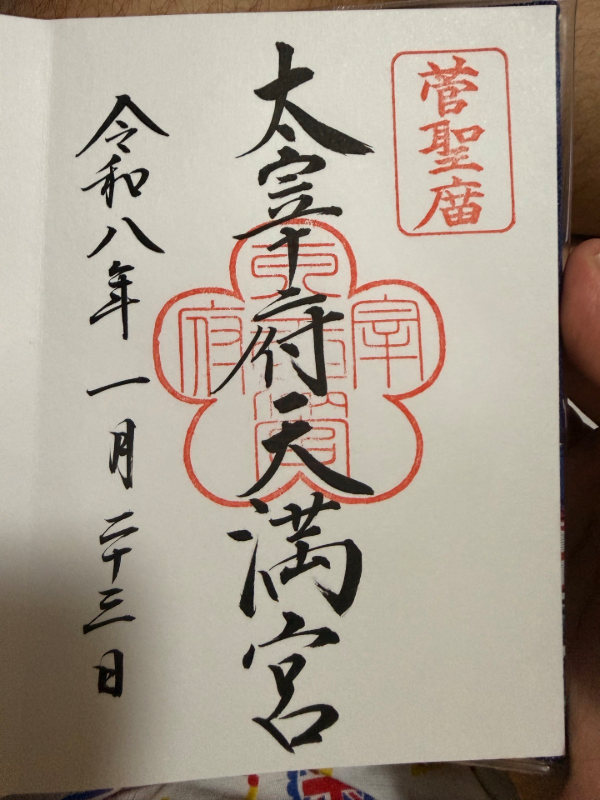 菅聖庿
太宰府天満宮
令和八年一月二十三日